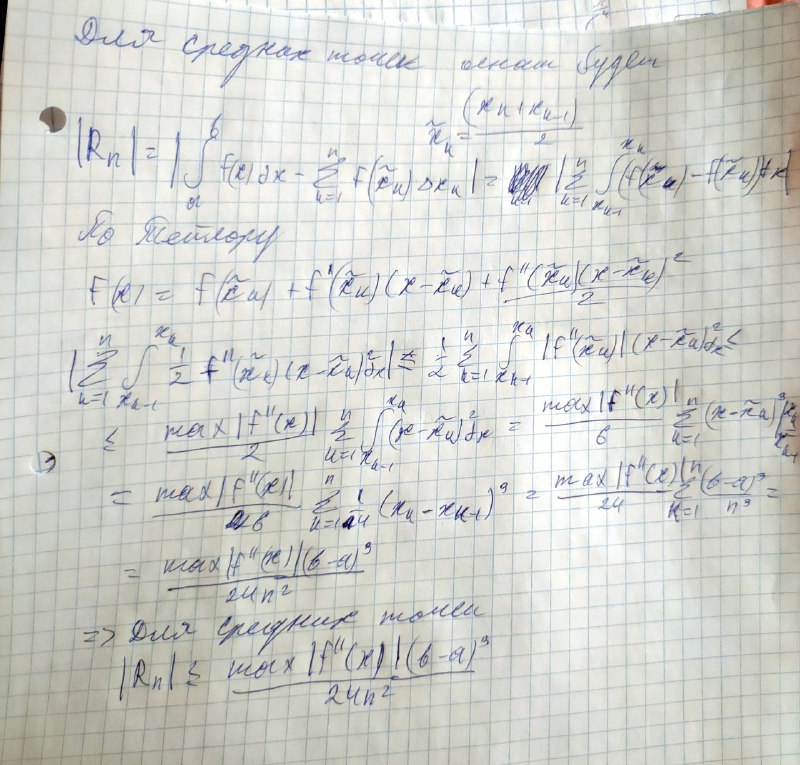 Для средних точек оснат будет
x̃ₖ = (xₖ + xₖ₋₁) / 2
|Rₙ| = |∫ₐᵇ f(x)dx - Σₖ₌₁ⁿ f(x̃ₖ) Δxₖ| = |Σₖ₌₁ⁿ ∫_{xₖ₋₁}^{xₖ} (f(x̃ₖ) - f(x̃ₖ))dx|
По Тейлору
f(x) = f(x̃ₖ) + f'(x̃ₖ)(x - x̃ₖ) + f''(x̃ₖ)(x - x̃ₖ)² / 2
|Σₖ₌₁ⁿ ∫_{xₖ₋₁}^{xₖ} 1/2 f''(x̃ₖ)(x - x̃ₖ)² dx| ≤ 1/2 Σₖ₌₁ⁿ ∫_{xₖ₋₁}^{xₖ} |f''(x̃ₖ)|(x - x̃ₖ)² dx ≤
≤ max|f''(x)| / 2 Σₖ₌₁ⁿ ∫_{xₖ₋₁}^{xₖ} (x - x̃ₖ)² dx = max|f''(x)| / 6 Σₖ₌₁ⁿ (x - x̃ₖ)³ |_{xₖ₋₁}^{xₖ}
= max|f''(x)| / 6 Σₖ₌₁ⁿ 1/4 (xₖ - xₖ₋₁)³ = max|f''(x)| / 24 Σₖ₌₁ⁿ (b-a)³ / n³ =
= max|f''(x)|(b-a)³ / 24n²
=> Для средних точек
|Rₙ| ≤ max|f''(x)|(b-a)³ / 24n²